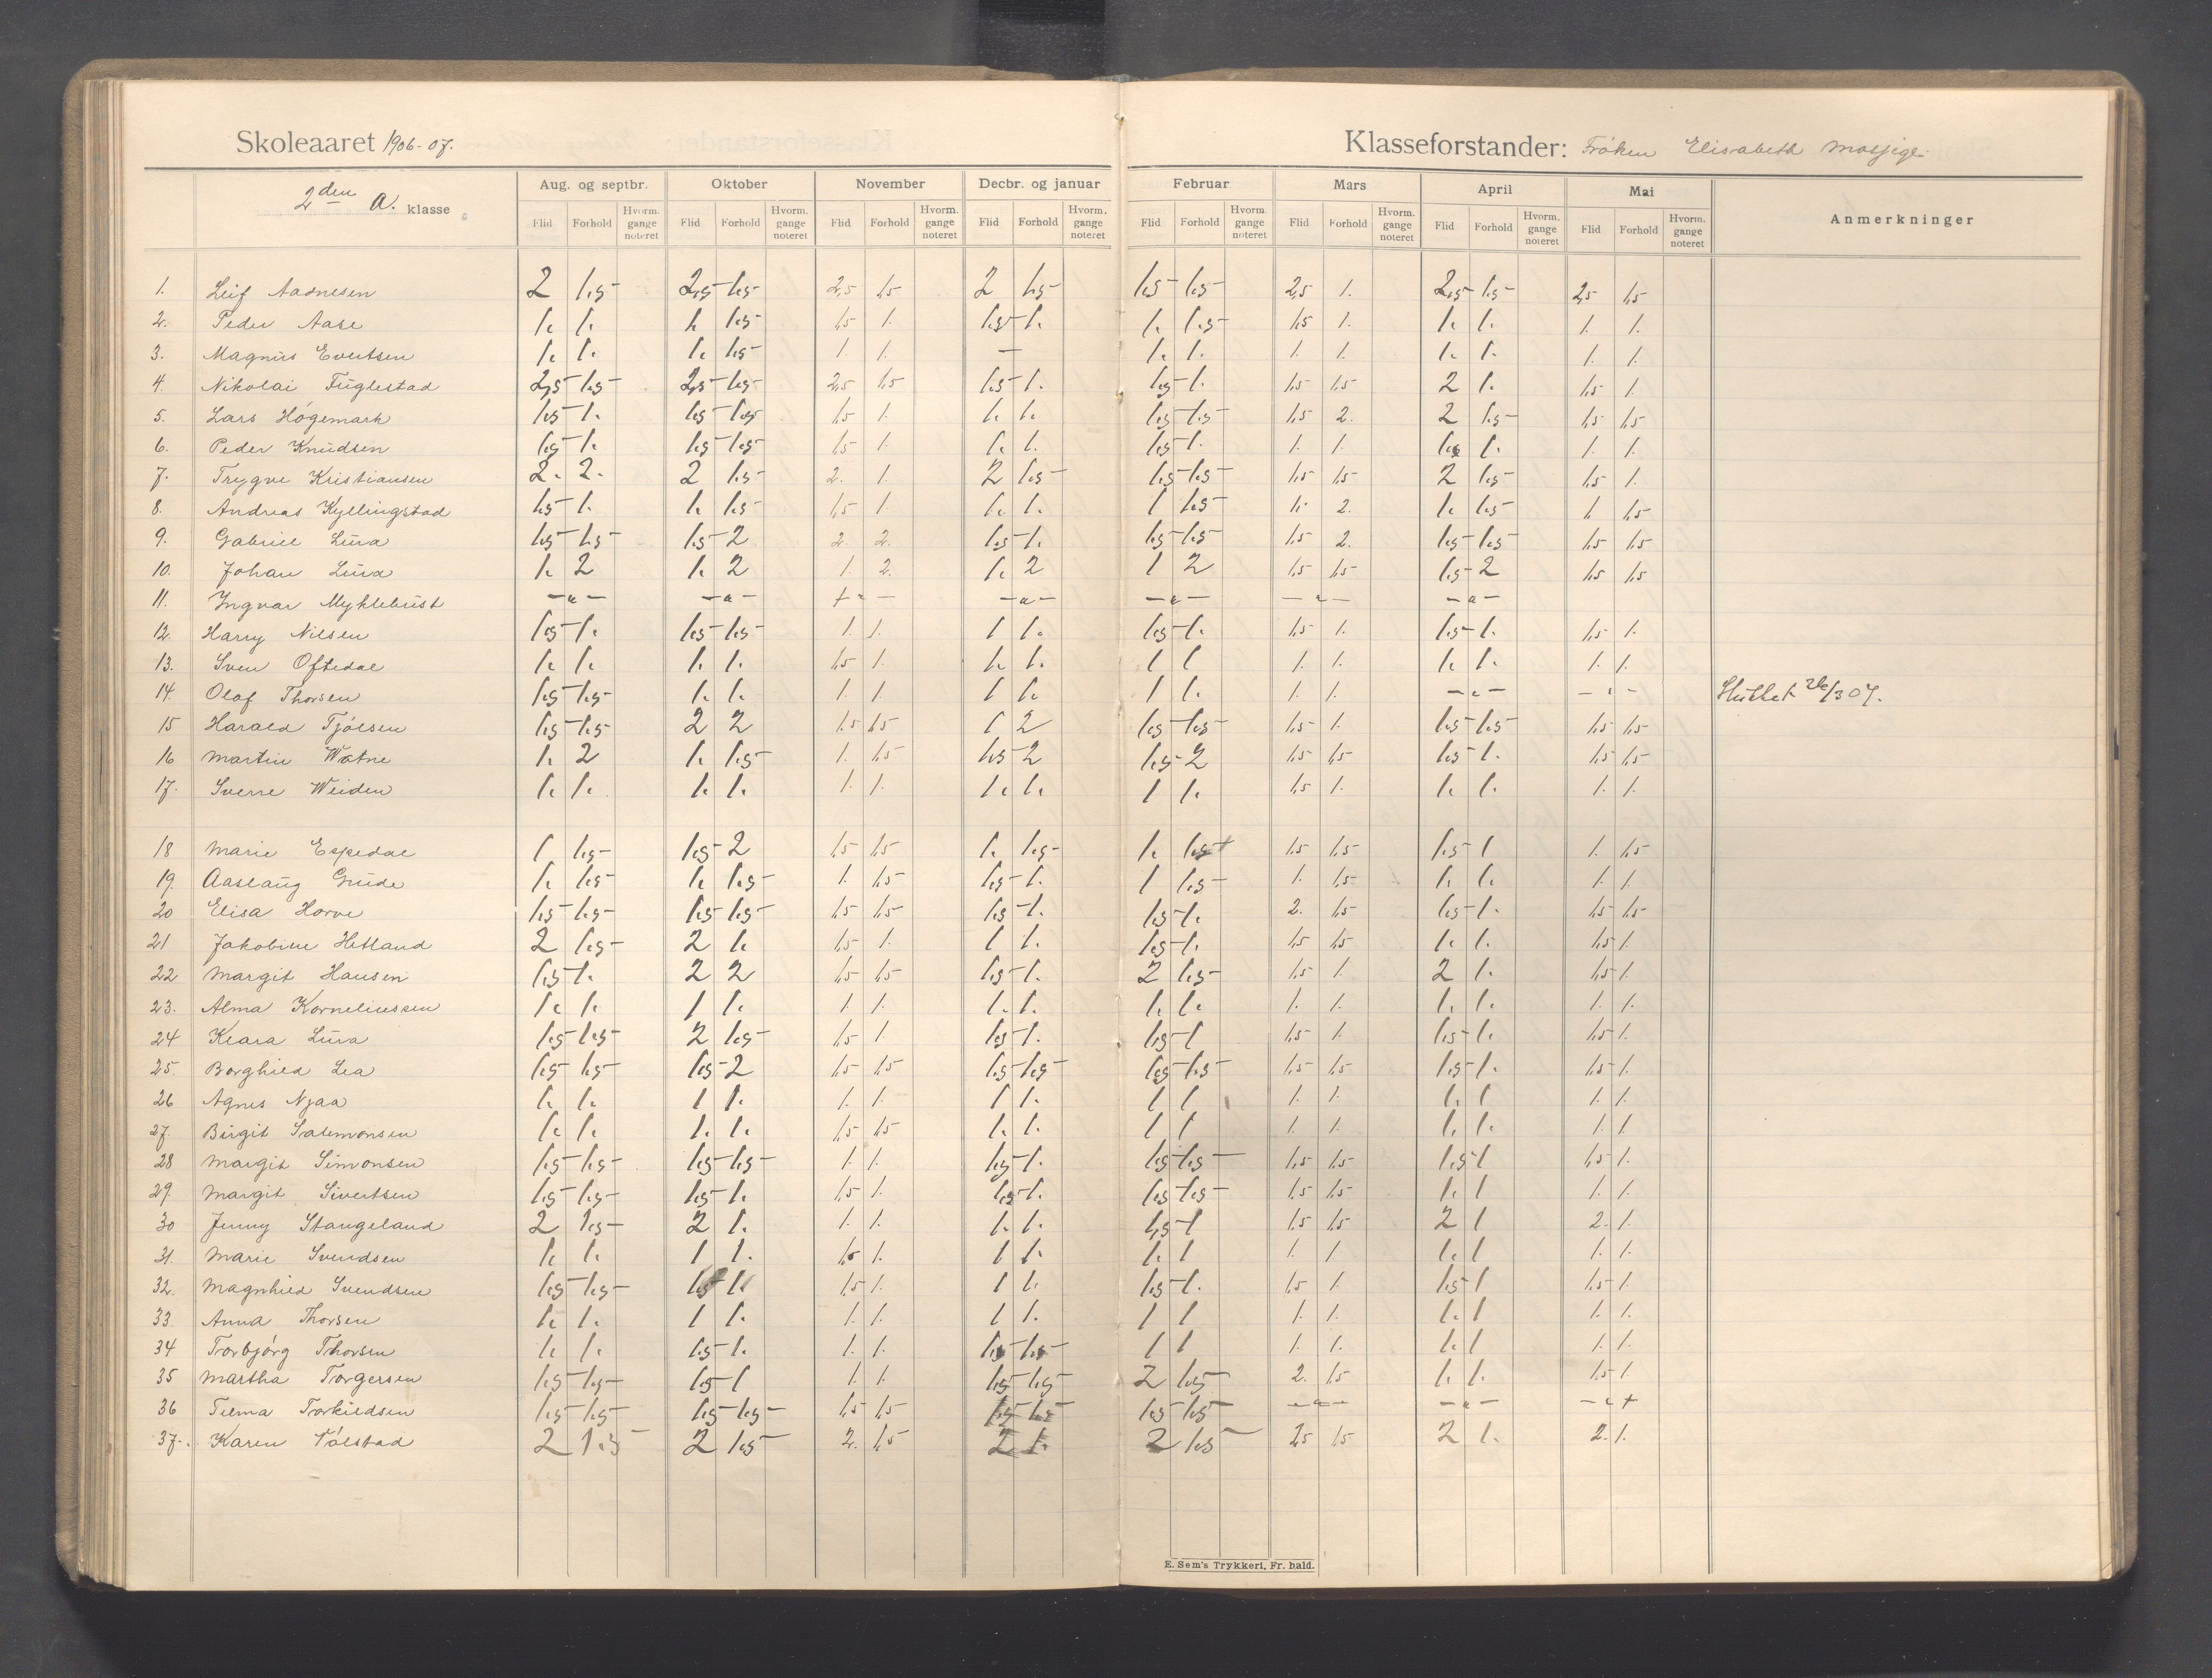 Skoleaaret 1906-07. Klasseforstander: Frøken Elisabeth
2den a. klasse Aug. og septbr. Oktober November Decbr. og januar Februar Mars April Mai Anmerkninger
Flid Forhold Hvorm. gange noteret Flid Forhold Hvorm. gange noteret Flid Forhold Hvorm. gange noteret Flid Forhold Hvorm. gange noteret Flid Forhold Hvorm. gange noteret Flid Forhold Hvorm. gange noteret Flid Forhold Hvorm. gange noteret Flid Forhold Hvorm. gange noteret
1. Leif Aadnesen 2 1,5 2,5 1,5 2,5 1,5 2 1,5 1,5 1,5 2,5 1. 2,5 1,5 2,5 1,5
2. Peder Aase 1. 1. 1. 1,5 1,5 1. 1,5 1. 1. 1,5 1,5 1. 1. 1. 1. 1.
3. Magnus Evertsen 1. 1. 1. 1,5 1. 1. — 1. 1. 1. 1. 1. 1. 1. 1.
4. Nikolai Fuglestad 2,5 1,5 2,5 1,5 2,5 1,5 1,5 1. 1,5 1. 1,5 1,5 2 1. 1,5 1.
5. Lars Høgemark 1,5 1. 1,5 1,5 1,5 1. 1. 1. 1,5 1,5 1,5 2. 2 1,5 1,5 1,5
6. Peder Knudsen 1,5 1. 1,5 1,5 1,5 1. 1. 1. 1,5 1. 1. 1. 1. 1. 1. 1.
7. Trygve Kristiansen 2. 2. 2 1,5 2. 1. 2 1,5 1,5 1,5 1,5 1,5 2 1,5 1,5 1.
8. Andreas Kyllingstad 1,5 1. 1. 1,5 1,5 1. 1. 1. 1 1,5 1. 2. 1. 1,5 1 1,5
9. Gabriel Lura 1,5 1,5 1,5 2 2. 2. 1,5 1. 1,5 1,5 1,5 2. 1,5 1,5 1,5 1,5
10. Johan Lura 1. 2 1. 2 1. 2. 1. 2 1 2 1,5 1,5 1,5 2 1,5 1,5
11. Ingvar Myklebust — " — — " — — " — — " — — " — — " — — " —
12. Harry Nilsen 1,5 1. 1,5 1,5 1. 1. 1 1. 1,5 1. 1,5 1. 1,5 1. 1,5 1.
13. Sven Oftedal 1. 1. 1. 1. 1,5 1. 1. 1. 1 1 1. 1. 1. 1. 1. 1.
14. Olaf Thorsen 1,5 1,5 1. 1. 1. 1. 1 1. 1 1. 1. 1. — " — — " — Sluttet 26/3 07.
15 Harald Tjølsen 1,5 1,5 2 2 1,5 1,5 1 2 1,5 1,5 1,5 1. 1,5 1,5 1,5 1,5
16 Martin Watne 1. 2 1. 1,5 1. 1,5 1,5 2 1,5 2 1,5 1,5 1,5 1. 1,5 1,5
17. Sverre Weiden 1. 1. 1. 1. 1. 1. 1. 1. 1 1. 1,5 1. 1. 1. 1. 1.
18 Marie Espedal 1 1,5 1,5 2 1,5 1,5 1. 1,5 1. 1,5 1,5 1,5 1,5 1 1. 1,5
19. Aaslaug Grude 1. 1,5 1. 1,5 1. 1,5 1,5 1. 1 1,5 1. 1,5 1. 1. 1. 1.
20 Elisa Horve 1,5 1,5 1,5 1,5 1,5 1,5 1,5 1. 1,5 1. 2. 1,5 1,5 1. 1,5 1,5
21 Jakobine Hetland 2 1,5 2 1. 1,5 1. 1 1. 1,5 1. 1,5 1,5 1. 1. 1,5 1.
22 Margit Hansen 1,5 1. 2 2 1,5 1,5 1,5 1. 2 1,5 1,5 1. 2 1. 1,5 1.
23. Alma Korneliussen 1. 1. 1 1. 1. 1. 1. 1. 1. 1. 1. 1. 1. 1. 1. 1.
24 Klara Lura 1,5 1,5 2 1,5 1,5 1. 1,5 1. 1,5 1 1,5 1. 1,5 1. 1,5 1.
25. Borghild Lea 1,5 1,5 1,5 2 1,5 1,5 1,5 1,5 1,5 1,5 1,5 1,5 1,5 1. 1,5 1.
26 Agnes Njaa 1. 1. 1 1. 1. 1. 1 1. 1 1 1. 1. 1. 1 1. 1.
27. Birgit Salemonsen 1. 1. 1. 1. 1,5 1,5 1. 1. 1 1 1. 1. 1. 1. 1. 1
28 Margit Simonsen 1,5 1,5 1,5 1,5 1. 1. 1,5 1. 1,5 1,5 1,5 1,5 1,5 1 1,5 1.
29. Margit Sivertsen 1,5 1,5 1,5 1. 1,5 1. 1,5 1. 1,5 1,5 1,5 1,5 1. 1 1. 1.
30 Jenny Stangeland 2 1,5 2 1. 1. 1. 1. 1. 1,5 1 1,5 1,5 2 1 2. 1.
31. Marie Svendsen 1. 1. 1 1. 1,5 1. 1 1. 1. 1 1. 1 1. 1 1. 1.
32. Magnhild Svendsen 1,5 1,5 1,5 1. 1,5 1. 1 1. 1,5 1. 1,5 1. 1,5 1 1,5 1.
33. Anna Thorsen 1. 1. 1 1. 1. 1. 1 1. 1 1 1. 1. 1. 1 1. 1.
34 Torbjørg Thorsen 1. 1. 1,5 1. 1. 1. 1,5 1,5 1 1 1. 1. 1. 1 1. 1.
35 Martha Torgersen 1,5 1,5 1,5 1 1. 1. 1,5 1,5 2 1,5 2. 1,5 1. 1. 1,5 1
36 Telma Torkildsen 1,5 1,5 1,5 1,5 1,5 1,5 1,5 1,5 1,5 1,5 — " — — " — — " —
37. Karen Tølstad 2 1,5 2 1,5 2. 1,5 2 1. 2 1,5 2,5 1,5 2 1. 2. 1.
E. Sem's Trykkeri, Fr. hald.